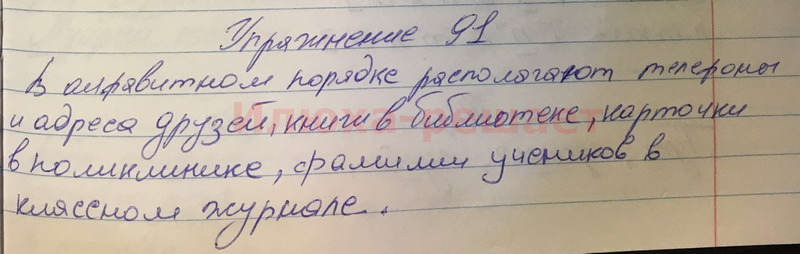 Упражнение 91
В алфавитном порядке распологают телефоны
и адреса друзей, книги в библиотеке, карточки
Илюха-решает
в поликлинике, фамилии учеников в
классном журнале.